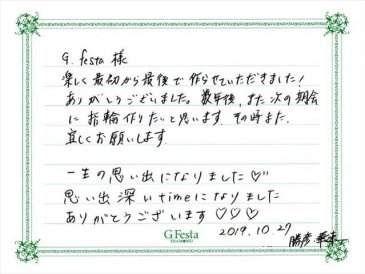 G.festa 様
楽しく最初から最後で作らせていただきました！
ありがとうございました。数年後、また次の期会
に指輪作りたいと思います。その時また、
宜しくお願いします。
一生の思い出になりました♡〃
思い出深いtimeになりました
ありがとうございます♡♡♡
G.Festa
DIAMOND
2019.10.27
勝彦